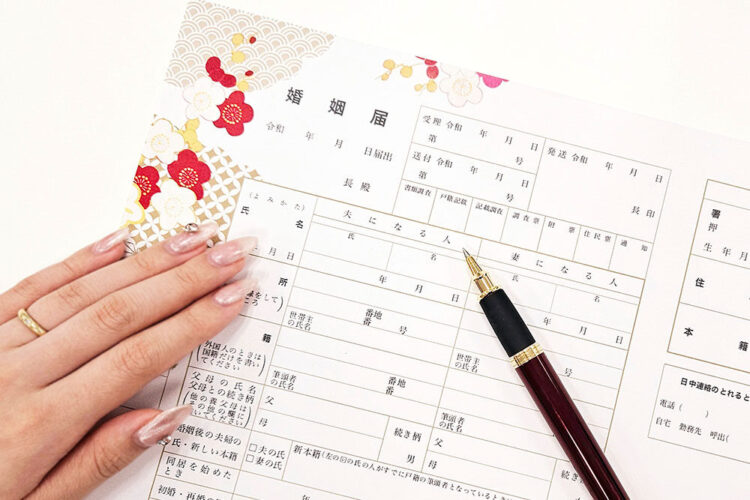 婚姻届
令和 年 月 日届出
長 殿
受理 令和 年 月 日
第 号
送付 令和 年 月 日
第 号
発送 令和 年 月 日
長 印
書類調査 戸籍記載 記載調査 調査票 附票 住民票 通知
(よみかた)
氏 名
夫になる人
妻になる人
氏 名
氏 名
月 日
年 月 日
年 月 日
所
番地
番 号
世帯主
の氏名
世帯主
の氏名
籍
外国人のときは
国籍だけを書い
てください
番地
番
筆頭者
の氏名
筆頭者
の氏名
父母の氏名
父母との続き柄
他の養父母は
その他の欄に
いてください
父
母
続き柄
男
父
母
婚姻後の夫婦の
氏・新しい本籍
□夫の氏
□妻の氏
新本籍(左の☑の氏の人がすでに戸籍の筆頭者となっているとき
同居を始めた
とき
初婚・再婚の
署
押
生 年 月
住
本 籍
日中連絡のとれると
電話( )
自宅 勤務先 呼出(